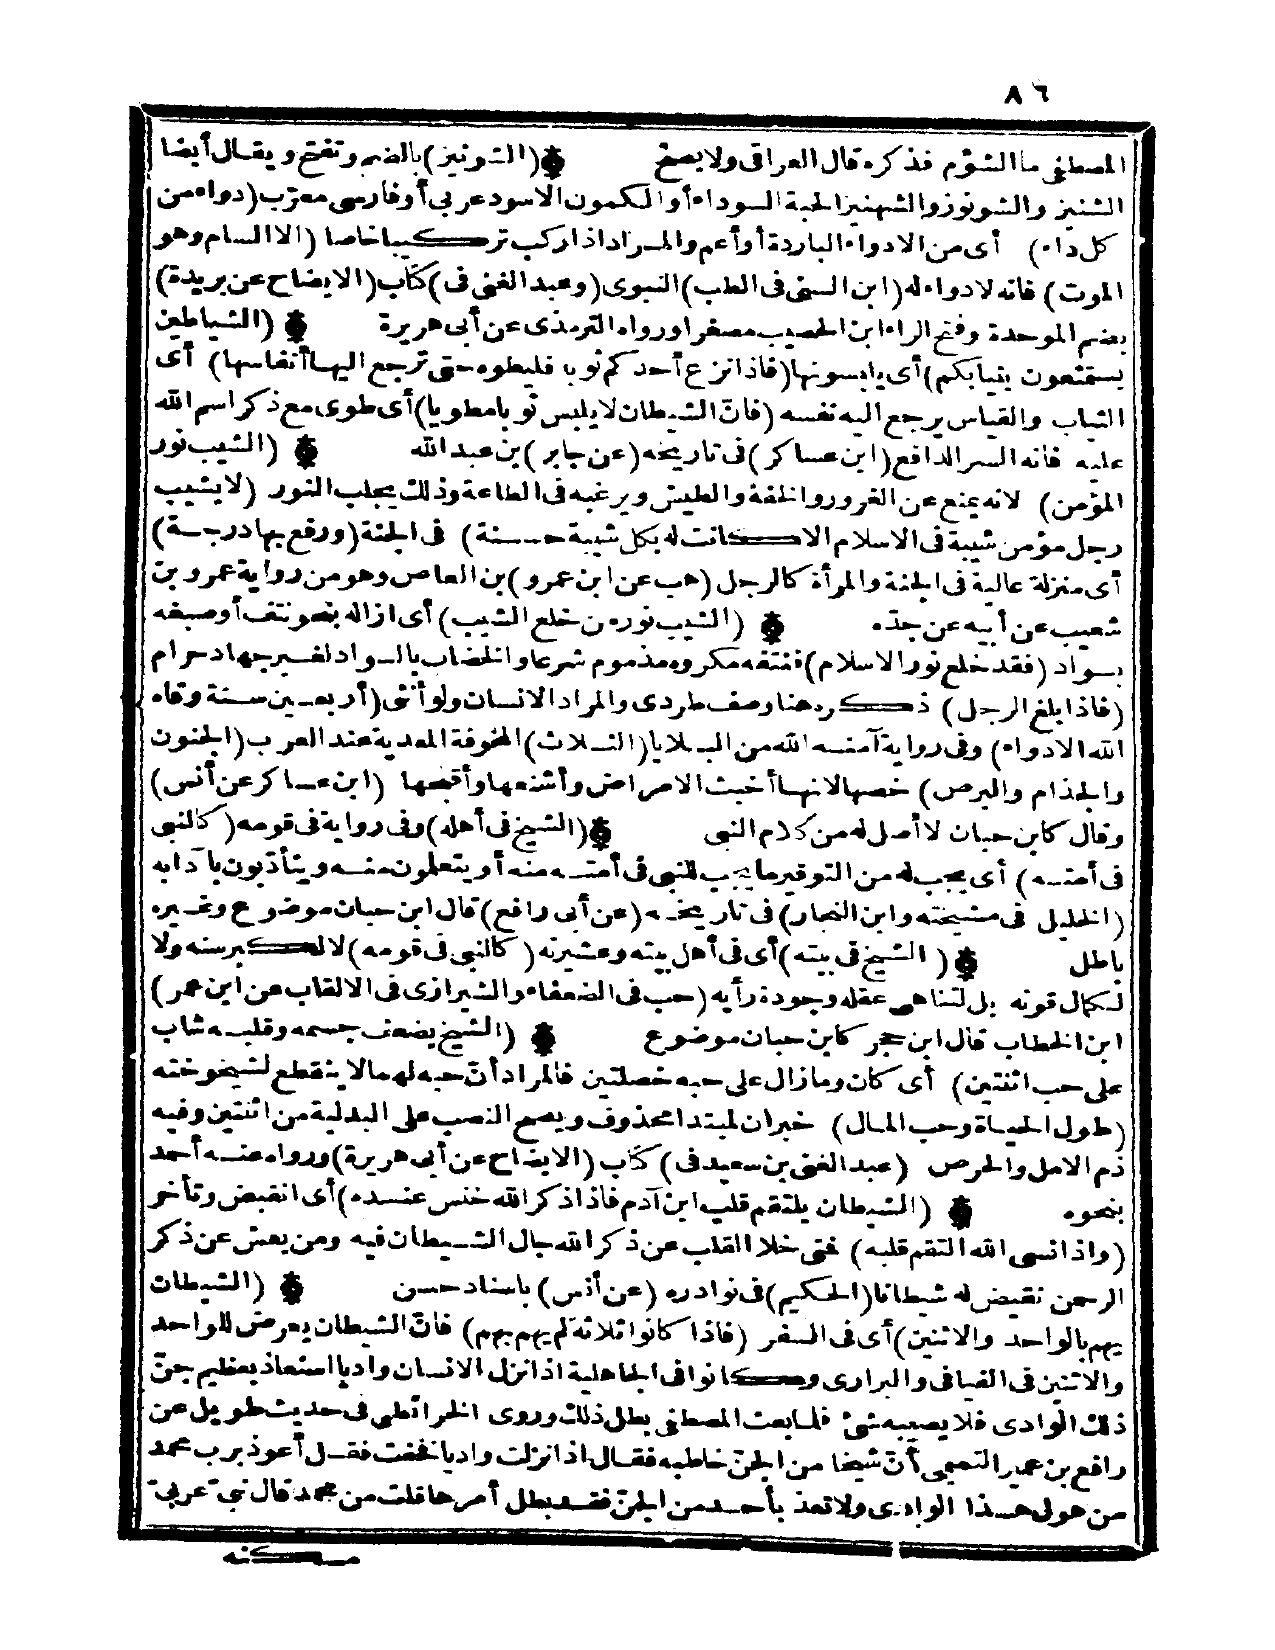 ٨٦
المصطفى ما الشؤم فذكره قال العراقى ولا يصح (الشونيز) بالضم وتفتح ويقال أيضا
الشنيز والشونوز والشهنيز الحبة السوداء أو الكمون الاسود عربى أو فارسى معرّب (دواء من
كل داء) أى من الادواء الباردة أو أعم والمراد اذا ركب تركيبا خاصا (الا السام وهو
الموت) فانه لا دواء له (ابن السنى فى الطب) النبوى (وعبد الغنى فى) كتاب (الايضاح عن بريدة)
بضم الموحدة وفتح الراء ابن الحصيب مصغرا ورواه الترمذى عن أبى هريرة (الشياطين
يستمتعون بثيابكم) أى يلبسونها (فاذا نزع أحدكم ثوبا فليطوه حتى ترجع اليها أنفاسها) أى
الثياب والقياس يرجع اليه نفسه (فانّ الشيطان لا يلبس ثوبا مطويا) أى طوى مع ذكر اسم الله
عليه فانه السر الدافع (ابن عساكر) فى تاريخه (عن جابر) بن عبد الله (الشيب نور
المؤمن) لانه يمنع عن الغرور والخفة والطيش ويرغبه فى الطاعة وذلك يجلب النور (لا يشيب
رجل مؤمن شيبة فى الاسلام الا كانت له بكل شيبة حسنة) فى الجنة (ورفع بها درجة)
أى منزلة عالية فى الجنة والمرأة كالرجل (هب عن ابن عمرو) بن العاص وهو من رواية عمرو بن
شعيب عن أبيه عن جدّه (الشيب نور من خلع الشيب) أى ازاله بنحو نتف أو صبغه
بسواد (فقد خلع نور الاسلام) فنتفه مكروه مذموم شرعا والخضاب بالسواد لغير جهاد حرام
(فاذا بلغ الرجل) ذكره هنا وصف طردى والمراد الانسان ولو أنثى (أربعين سنة وقاه
الله الادواء) وفى رواية آمنه الله من البلايا (الثلاث) المخوفة المعدية عند العرب (الجنون
والجذام والبرص) خصها لانها أخبث الامراض وأشنعها وأقبحها (ابن عساكر عن أنس)
وقال كابن حبان لا أصل له من كلام النبى (الشيخ فى أهله) وفى رواية فى قومه (كالنبى
فى أمته) أى يجب له من التوقير ما يجب للنبى فى أمته منه أو يتعلمون منه ويتأدّبون بآدابه
(الخليل فى مشيخته وابن النجار) فى تاريخه (عن أبى رافع) قال ابن حبان موضوع وغيره
باطل (الشيخ فى بيته) أى فى أهل بيته وعشيرته (كالنبى فى قومه) لا لكبر سنه ولا
لكمال قوته بل لتناهى عقله وجودة رأيه (حب فى الضعفاء والشيرازى فى الالقاب عن ابن عمر)
ابن الخطاب قال ابن حجر كابن حبان موضوع (الشيخ يضعف جسمه وقلبه شاب
على حب اثنتين) أى كان وما زال على حبه خصلتين فالمراد أنّ حبه لهما لا ينقطع لشيخوخته
(طول الحياة وحب المال) خبران لمبتدا محذوف ويصح النصب على البدلية من اثنتين وفيه
ذم الامل والحرص (عبد الغنى بن سعيد فى) كتاب (الايضاح عن أبى هريرة) ورواه عنه أحمد
بنحوه (الشيطان يلتقم قلب ابن آدم فاذا ذكر الله خنس عنده) أى انقبض وتأخر
(واذا نسى الله التقم قلبه) فمتى خلا القلب عن ذكر الله جال الشيطان فيه ومن يعش عن ذكر
الرحمن نقيض له شيطانا (الحكيم) فى نوادره (عن أنس) باسناد حسن (الشيطان
يهم بالواحد والاثنين) أى فى السفر (فاذا كانوا ثلاثة لم يهم بهم) فانّ الشيطان يعرض للواحد
والاثنين فى الفيافى والبرارى وكانوا فى الجاهلية اذا نزل الانسان واديا استعاذ بعظيم جنّ
ذلك الوادى فلا يصيبه شئ فلما بعث المصطفى بطل ذلك وروى الخرائطى فى حديث طويل عن
رافع بن عمير التميمى أنّ شيخا من الجنّ خاطبه فقال اذا نزلت واديا فخفت فقل أعوذ برب محمد
من هول هذا الوادى ولا تعذ بأحد من الجنّ فقد بطل أمرها قلت من محمد قال نبىّ عربىّ
مسكنه